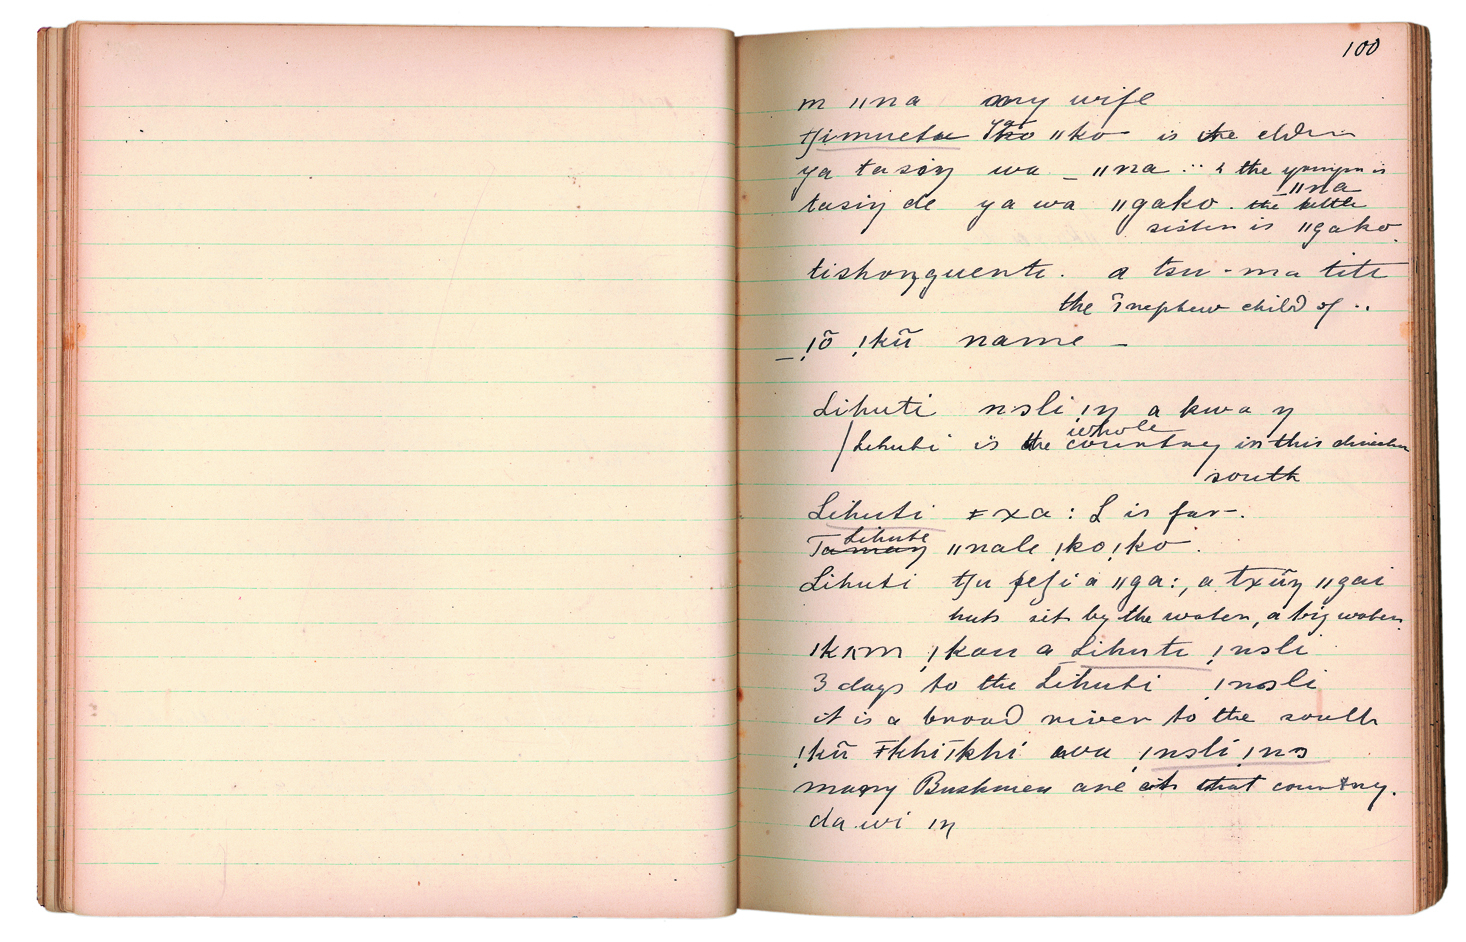 100
m ǁna my wife
ya ǁko is the elder
ya tasiŋ wa _ ǁna .. & the younger is
ǁna
tasiŋ de ya wa ǁgako. the little
sister is ǁgako.
tishoŋguenti. a tsu-ma titi
the ? nephew child of ..
_ǃõ ǃkũ name _
Lihuti ǃŋ a kwa ŋ
whole
Lihuti is the country in this direction
south
Lihuti ǂxa: L is far-.
Lihuti
Tamaŋ ǁnale ǃkoǃko.
Lihuti tʃu ʃeʃi a ǁga:, a txũŋ ǁgai
huts sit by the water, a big water.
ǃkau a Lihuti ǃnɔli
3 days to the Lihuti ǃnɔli
it is a broad river to the south
ǃkũ ǂkhiǀkhi
many Bushmen are at that country.
da wi ǀŋ